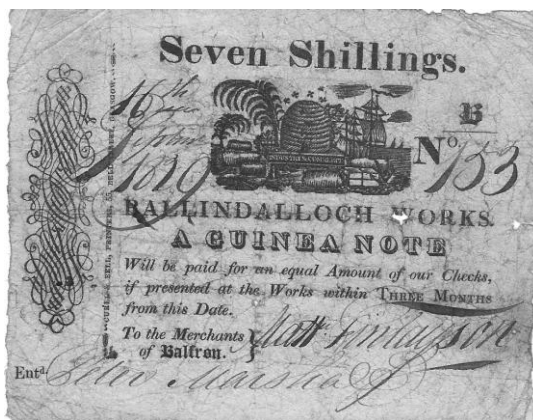 Seven Shillings.
16th
1829
B
No. 133
BALLINDALLOCH WORKS.
A GUINEA NOTE
Will be paid for an equal Amount of our Checks,
if presented at the Works within THREE MONTHS
from this Date.
To the Merchants
of Balfron.
Matt. Finlayson
Entd. Peter Marshall